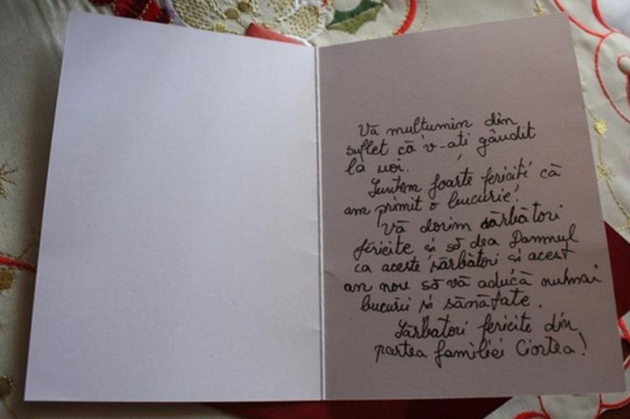 Vă mulțumim din
suflet că v-ați gândit
la noi.
Suntem foarte fericiți că
am primit o bucurie!
Vă dorim sărbători
fericite și să dea Domnul
ca aceste sărbători și acest
an nou să vă aducă numai
bucurii și sănătate.
Sărbători fericite din
partea familiei Ciortea!